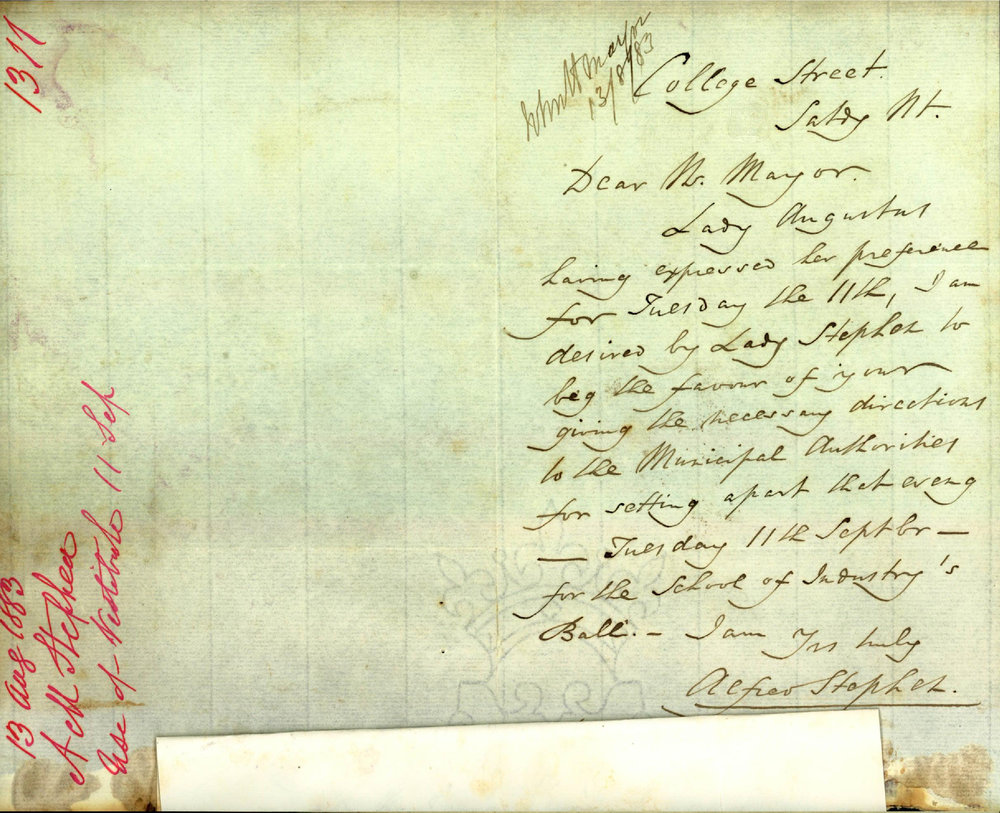 1311
Mayor
13/8/83
College Street.
Satdy Nt.
Dear Mr. Mayor.
Lady Augustus
having expressed her preference
for Tuesday the 11th, I am
desired by Lady Stephen to
beg the favour of your
giving the necessary directions
to the Municipal Authorities
for setting apart that eveng
— Tuesday 11th Septbr —
for the School of Industry's
Ball. — I am Yrs truly
Alfred Stephen.
13 Aug 1883
Stephen
Use of Vestibule 11 Sep